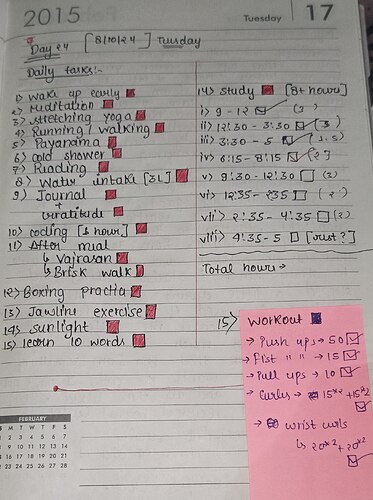 2015
Tuesday 17
Day 24 [8/10/24] Tuesday
Daily tasks:-
1) wake up early
2) Meditation
3) stretching yoga
4) Running / walking
5) Payanama
6) cold shower
7) Reading
8) Water intake [3L]
9) Journal
+
Gratitude
10) coding [1 hour]
11) After meal
↳ Vajrasan
↳ Brisk walk
12) Boxing practice
13) Jawline exercise
14) sunlight
15) learn 10 words
14) study [8+ hours]
i) 9 - 12 (3)
ii) 12:30 - 3:30 (3)
iii) 3:30 - 5 (1.5)
iv) 6:15 - 8:15 (2)
v) 9:30 - 12:30 (3)
vi) 12:35 - 2:35 (2)
vii) 2:35 - 4:35 (2)
viii) 4:35 - 5 [rest?]
Total hours →
15) Workout
→ Push ups → 50
→ Fist " " → 15
→ Pull ups → 10
→ Curls → 15*2 + 15*2
→ wrist curls
↳ 20*2 + 20*2
FEBRUARY
S M T W T F S
1 2 3 4 5 6 7
8 9 10 11 12 13 14
15 16 17 18 19 20 21
22 23 24 25 26 27 28